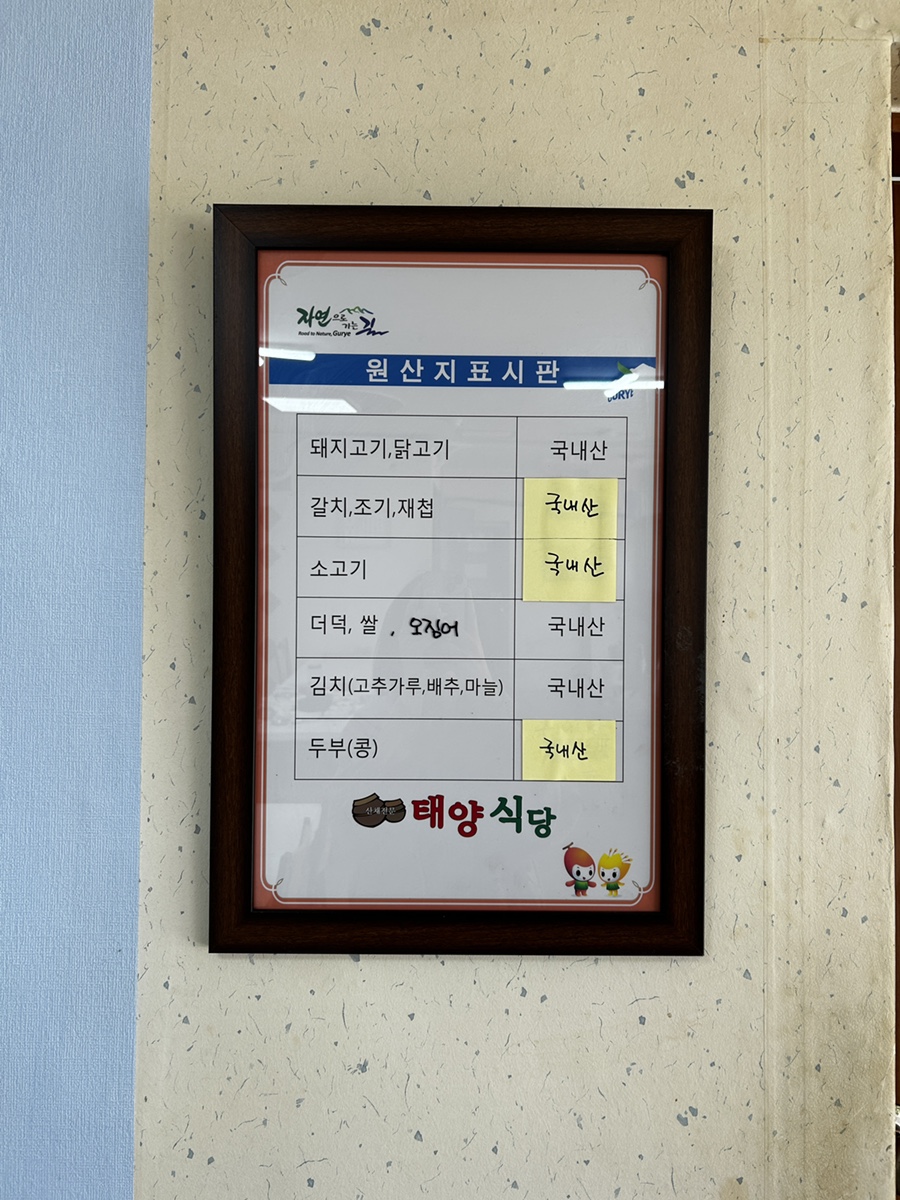 자연으로 가는 길
Road to Nature, Gurye
원산지표시판
GURYE
돼지고기,닭고기 국내산
갈치,조기,재첩 국내산
소고기 국내산
더덕, 쌀 , 오징어 국내산
김치(고추가루,배추,마늘) 국내산
두부(콩) 국내산
산채전문 태양식당